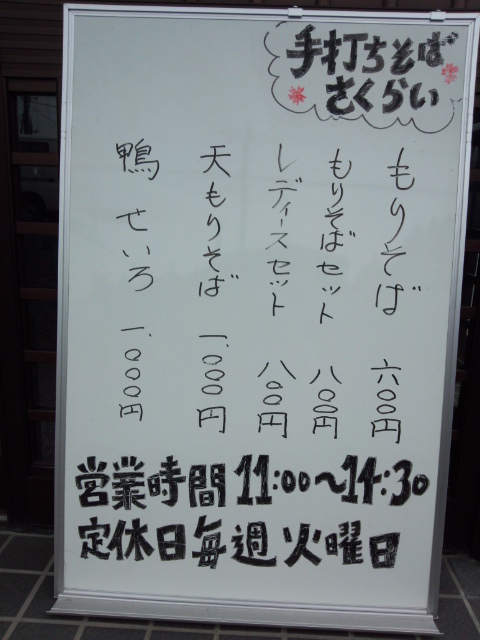 手打ちそば
さくらい
もりそば 六〇〇円
もりそばセット 八〇〇円
レディースセット 八〇〇円
天もりそば 一、〇〇〇円
鴨せいろ 一、〇〇〇円
営業時間 11:00〜14:30
定休日毎週火曜日